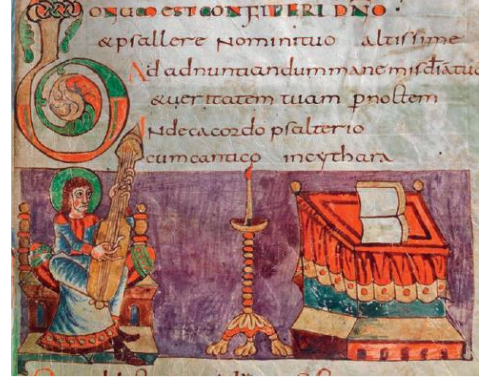 BONUM EST CONFITERI DÑO
& psallere nomini tuo altissime
Ad adnuntiandum mane
& ueritatem tuam p noctem
In decacordo psalterio
cum cantico in cythara